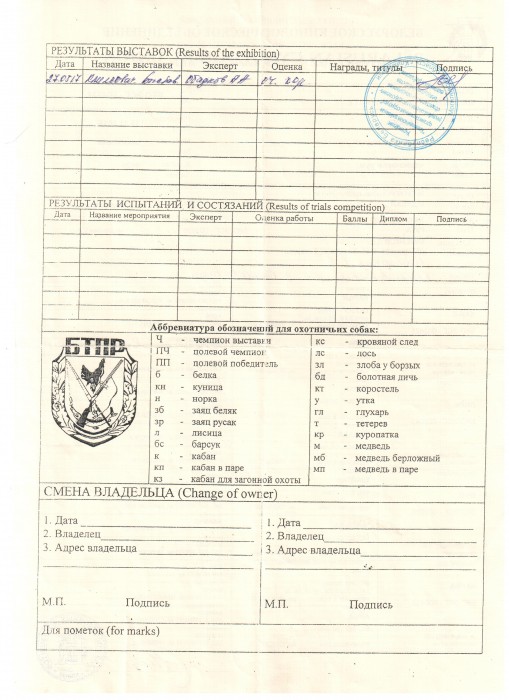 РЕЗУЛЬТАТЫ ВЫСТАВОК (Results of the exhibition)
Дата Название выставки Эксперт Оценка Награды, титулы Подпись
РЕЗУЛЬТАТЫ ИСПЫТАНИЙ И СОСТЯЗАНИЙ (Results of trials competition)
Дата Название мероприятия Эксперт Оценка работы Баллы Диплом Подпись
Аббревиатура обозначений для охотничьих собак:
БТПР
Ч - чемпион выставки
ПЧ - полевой чемпион
ПП - полевой победитель
б - белка
кн - куница
н - норка
зб - заяц беляк
зр - заяц русак
л - лисица
бс - барсук
к - кабан
кп - кабан в паре
кз - кабан для загонной охоты
кс - кровяной след
лс - лось
зл - злоба у борзых
бд - болотная дичь
кт - коростель
у - утка
гл - глухарь
т - тетерев
кр - куропатка
м - медведь
мб - медведь берложный
мп - медведь в паре
СМЕНА ВЛАДЕЛЬЦА (Change of owner)
1. Дата
2. Владелец
3. Адрес владельца
М.П. Подпись
1. Дата
2. Владелец
3. Адрес владельца
М.П. Подпись
Для пометок (for marks)